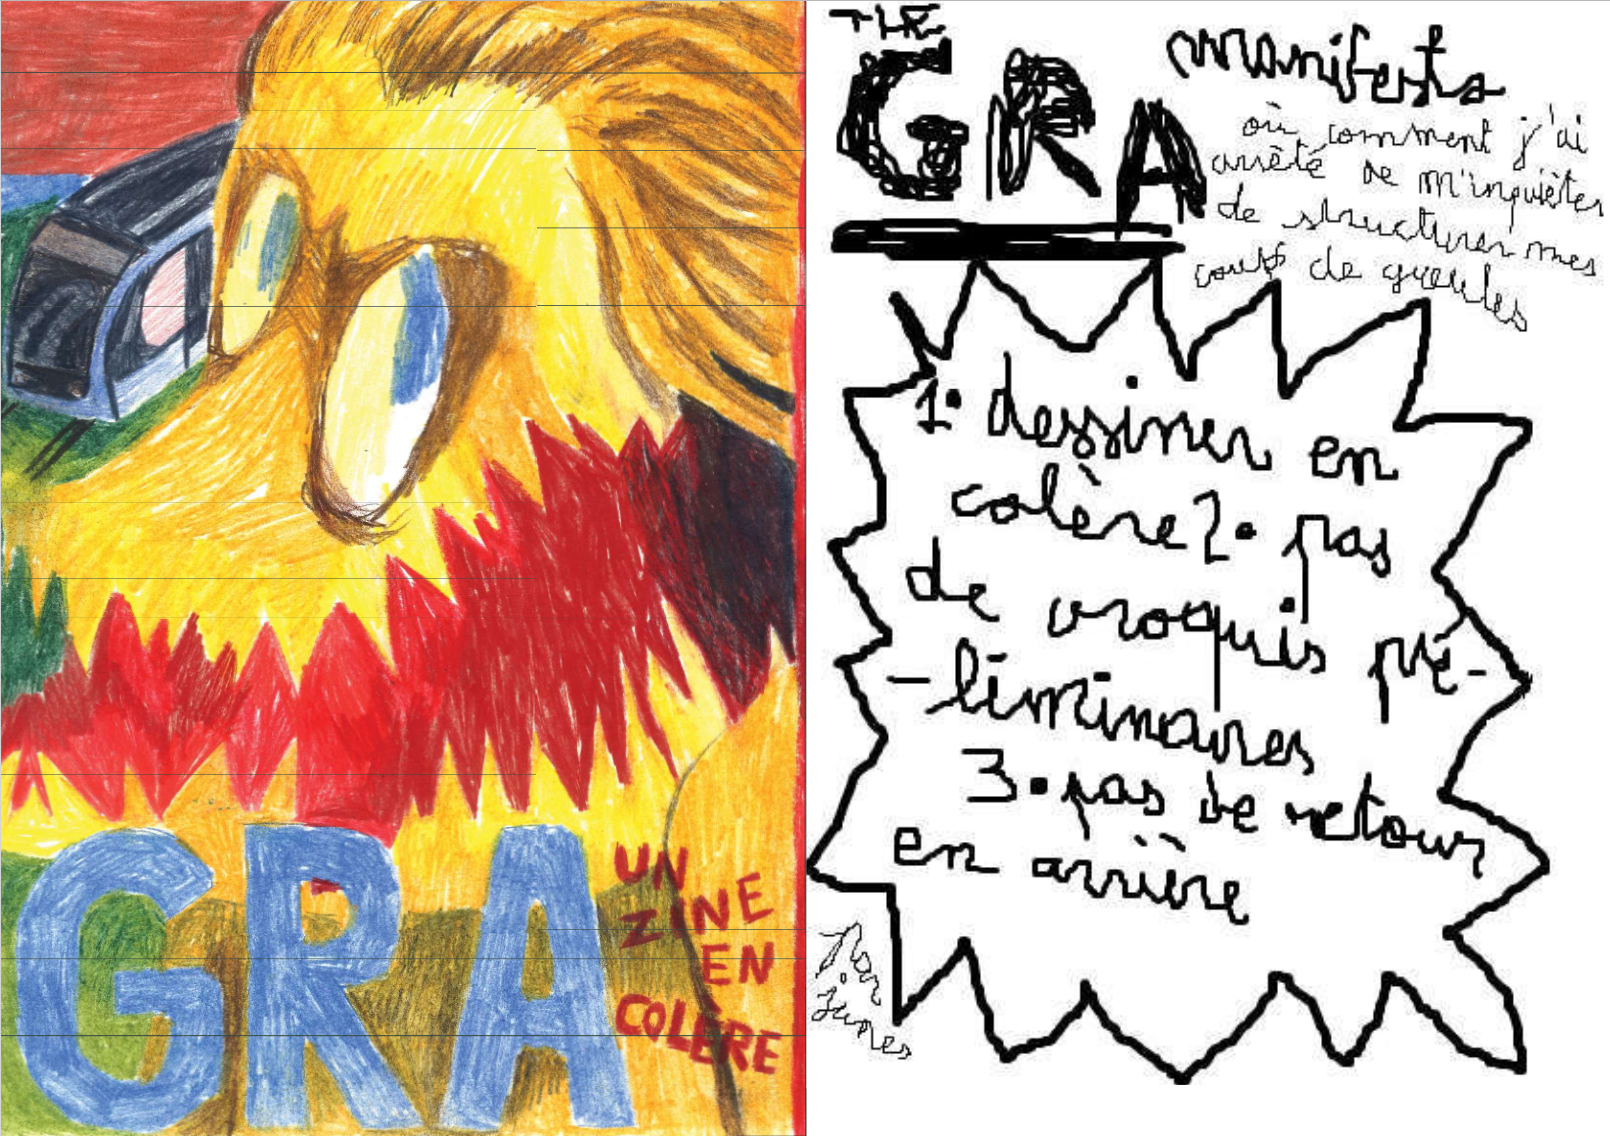 GRA
UN
ZINE
EN
COLÈRE
THE
GRA
manifesto
où comment j'ai
arrêté de m'inquiéter
de structurer mes
coups de gueules
1. dessiner en
colère 2. pas
de croquis pré-
-liminaires
3. pas de retour
en arrière